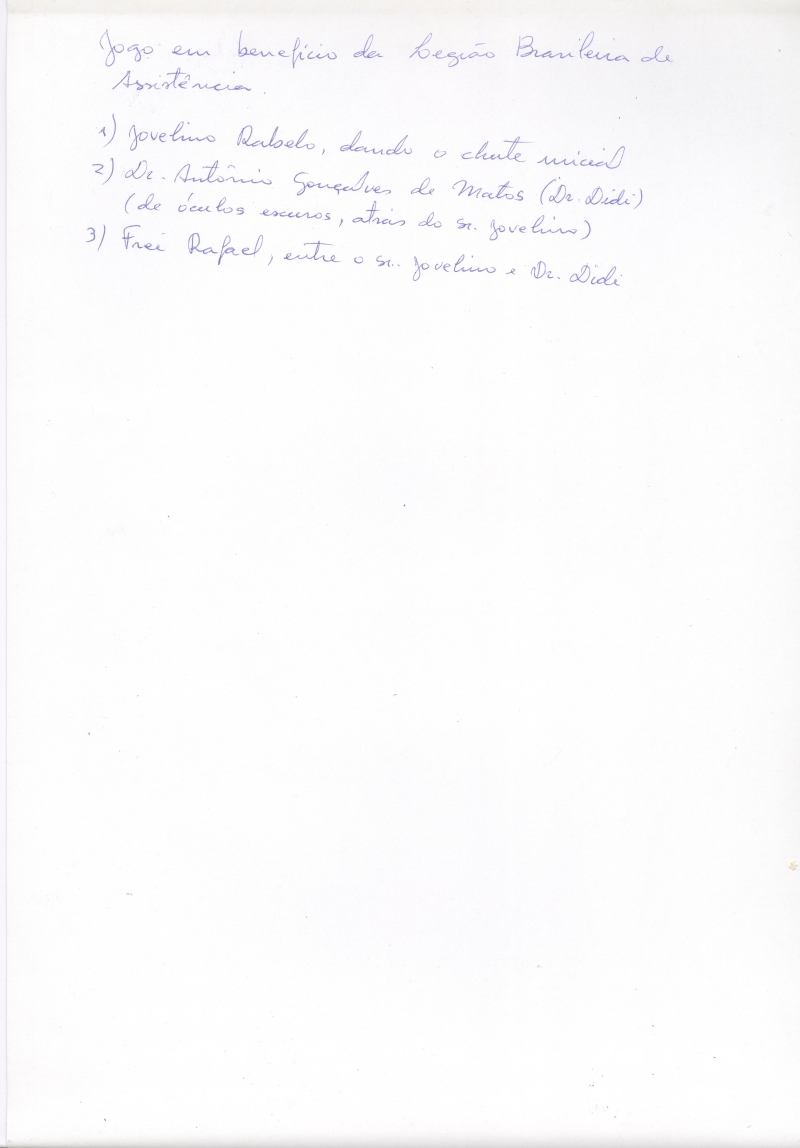 Jogo em benefício da Legião Brasileira de
Assistência.
1) Jovelino Rabelo, dando o chute inicial
2) Dr. Antônio Gonçalves de Matos (Dr. Didi)
(de óculos escuros, atrás do sr. Jovelino)
3) Frei Rafael, entre o sr. Jovelino e Dr. Didi